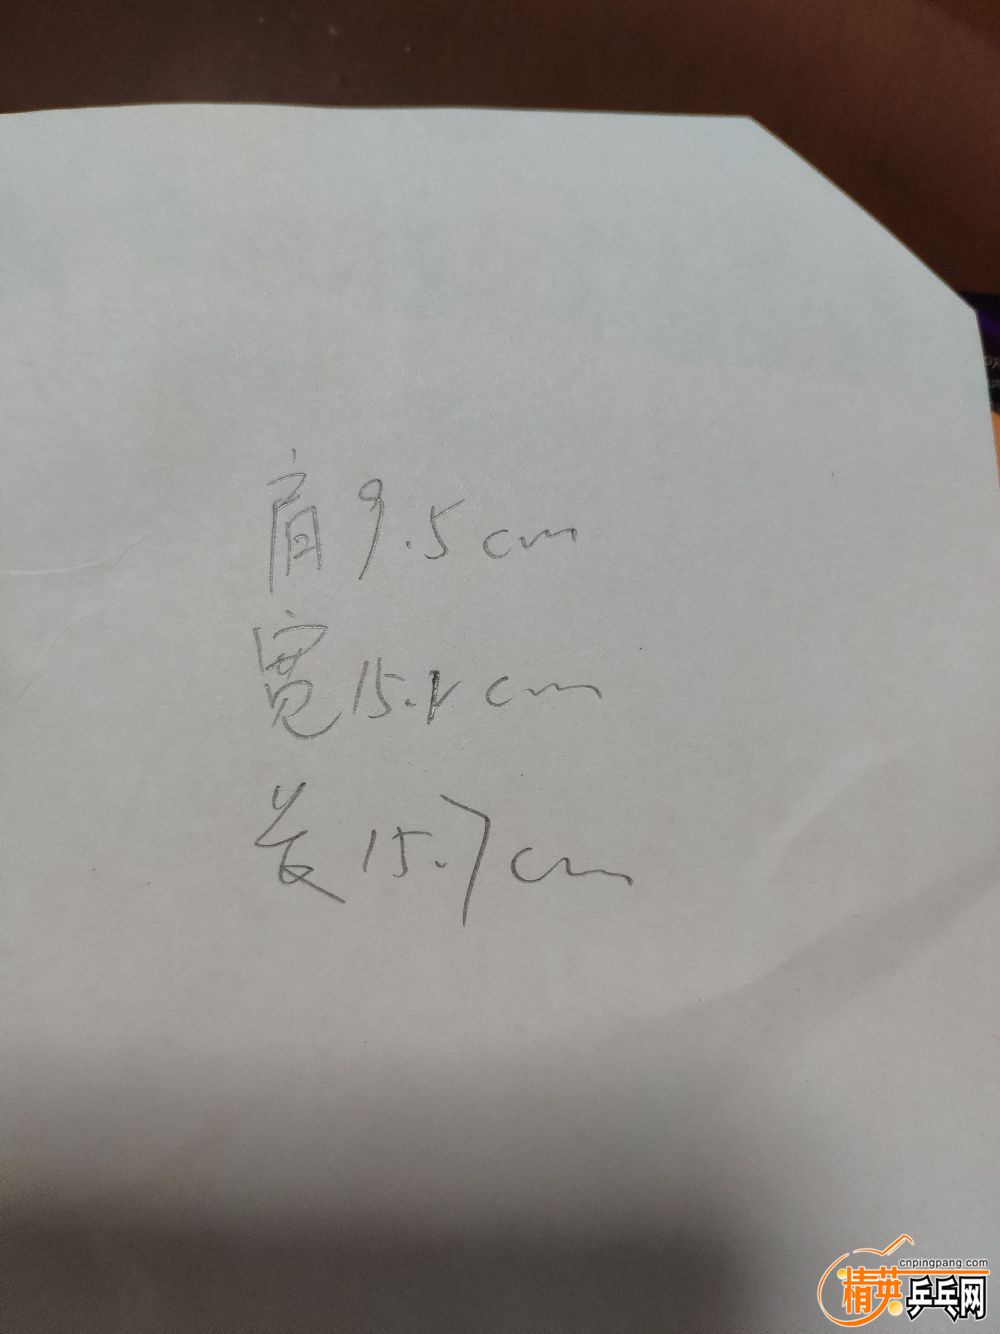 肩9.5cm
宽15.1cm
长15.7cm
cnpingpang.com
精英乒乓网